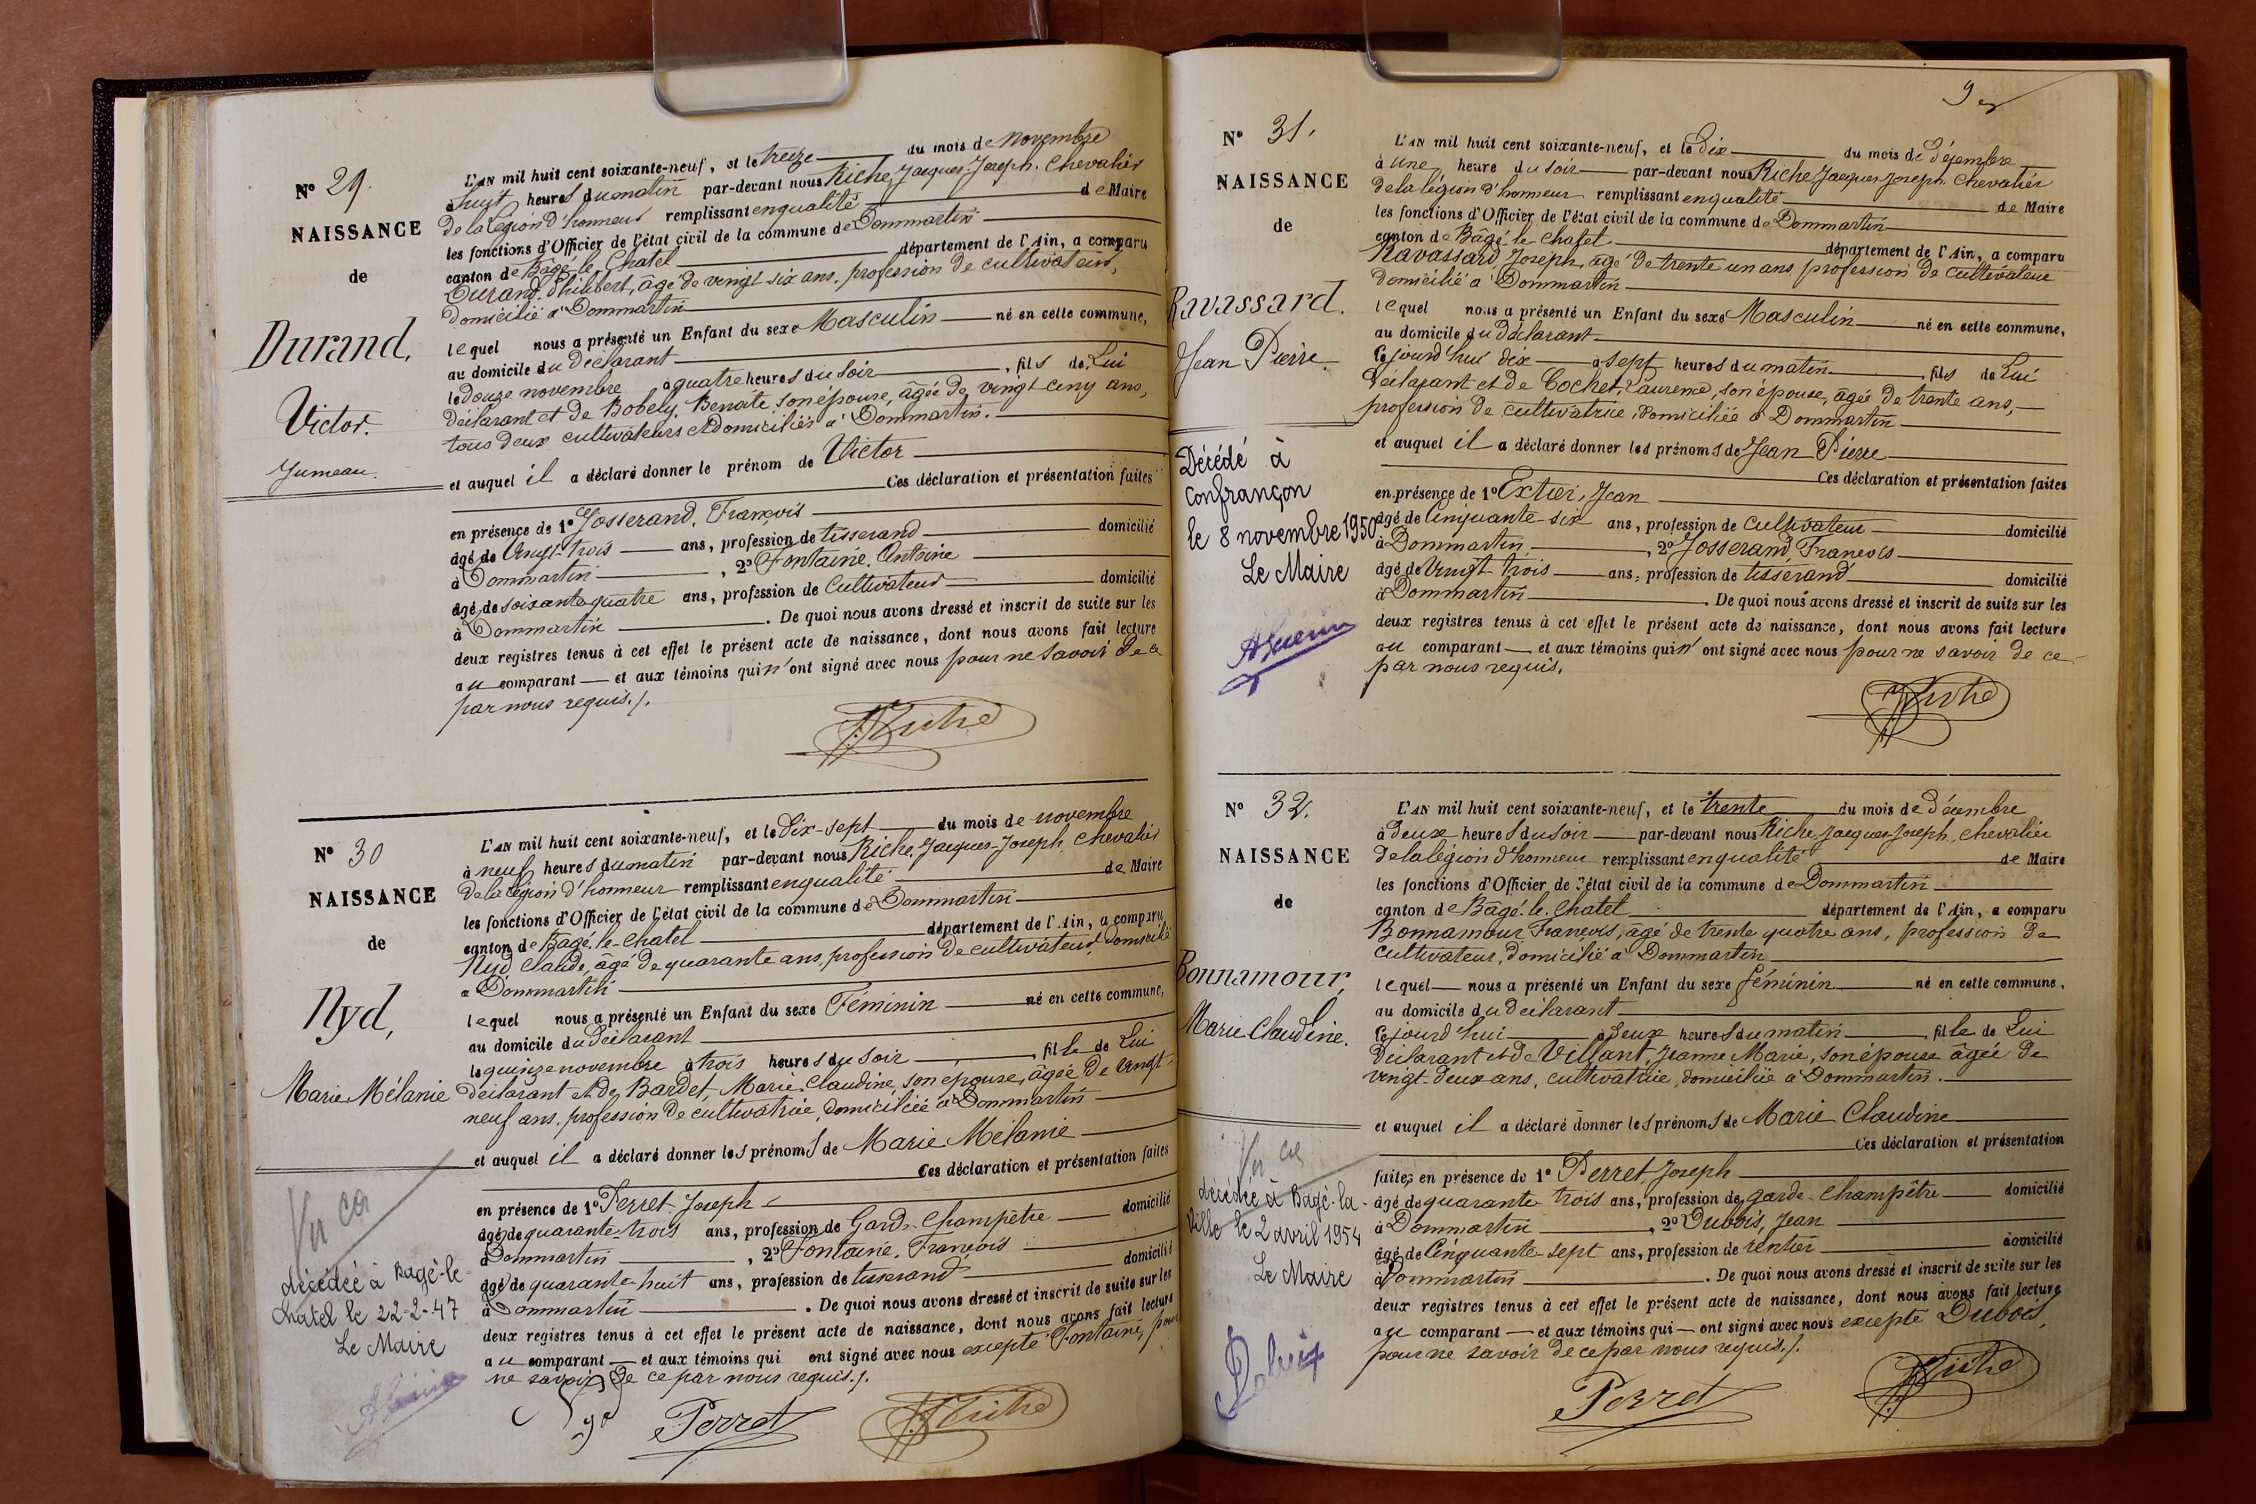 N° 29.
NAISSANCE
de
Durand,
Victor.
Jumeau.
L'AN mil huit cent soixante-neuf, et le treize du mois de novembre
à huit heures du matin par-devant nous Riche, Jacques-Joseph, Chevalier
de la Légion d'honneur remplissant en qualité de Maire
les fonctions d'Officier de l'état civil de la commune de Dommartin
canton de Bâgé-le-Chatel département de l'Ain, a comparu
Durand, Philibert, âgé de vingt six ans, profession de cultivateur,
domicilié à Dommartin
lequel nous a présenté un Enfant du sexe Masculin né en cette commune,
au domicile du déclarant
le douze novembre à quatre heures du soir, fils de Lui
déclarant et de Bobely, Benoite, son épouse, âgée de vingt cinq ans,
tous deux cultivateurs et domiciliés à Dommartin.
et auquel il a déclaré donner le prénom de Victor
Ces déclaration et présentation faites
en présence de 1° Josserand, François
âgé de Vingt-trois ans, profession de tisserand domicilié
à Dommartin, 2° Fontaine, Antoine
âgé de soixante quatre ans, profession de Cultivateur domicilié
à Dommartin. De quoi nous avons dressé et inscrit de suite sur les
deux registres tenus à cet effet le présent acte de naissance, dont nous avons fait lecture
au comparant et aux témoins qui n'ont signé avec nous pour ne savoir de ce
par nous requis./.
J. Riche
N° 30
NAISSANCE
de
Nyd,
Marie Mélanie
Vu
décédée à Bagé-le-
Chatel le 22-2-47
Le Maire
L'AN mil huit cent soixante-neuf, et le dix-sept du mois de novembre
à neuf heures du matin par-devant nous Riche, Jacques-Joseph, Chevalier
de la légion d'honneur remplissant en qualité de Maire
les fonctions d'Officier de l'état civil de la commune de Dommartin
canton de Bâgé-le-Chatel département de l'Ain, a comparu
Nyd, Claude, âgé de quarante ans, profession de cultivateur, domicilié
à Dommartin
lequel nous a présenté un Enfant du sexe Féminin né en cette commune,
au domicile du déclarant
le quinze novembre à trois heures du soir, fille de Lui
déclarant et de Bardet, Marie Claudine, son épouse, âgée de vingt-
neuf ans, profession de cultivatrice, domiciliée à Dommartin
et auquel il a déclaré donner les prénoms de Marie Mélanie
Ces déclaration et présentation faites
en présence de 1° Perret, Joseph
âgé de quarante-trois ans, profession de Garde-Champêtre domicilié
à Dommartin, 2° Fontaine, François
âgé de quarante-huit ans, profession de tisserand domicilié
à Dommartin. De quoi nous avons dressé et inscrit de suite sur les
deux registres tenus à cet effet le présent acte de naissance, dont nous avons fait lecture
au comparant et aux témoins qui ont signé avec nous excepté Fontaine, pour
ne savoir de ce par nous requis./.
Perret J. Riche
N° 31.
NAISSANCE
de
Ravassard.
Jean Pierre.
Décédé à
Confrançon
le 8 novembre 1950
Le Maire
AGuerin
L'AN mil huit cent soixante-neuf, et le Dix du mois de Décembre
à une heure du soir par-devant nous Riche, Jacques Joseph, Chevalier
de la légion d'honneur remplissant en qualité de Maire
les fonctions d'Officier de l'état civil de la commune de Dommartin
canton de Bâgé-le-Chatel département de l'Ain, a comparu
Ravassard, Joseph, âgé de trente un ans, profession de cultivateur
domicilié à Dommartin
lequel nous a présenté un Enfant du sexe Masculin né en cette commune,
au domicile du déclarant
Cejourd'hui dix à sept heures du matin, fils de Lui
Déclarant et de Cochet, Laurence, son épouse, âgée de trente ans,
profession de cultivatrice, domiciliée à Dommartin
et auquel il a déclaré donner les prénoms de Jean Pierre
Ces déclaration et présentation faites
en présence de 1° Extier, Jean
âgé de Cinquante-six ans, profession de cultivateur domicilié
à Dommartin, 2° Josserand François
âgé de vingt trois ans, profession de tisserand domicilié
à Dommartin. De quoi nous avons dressé et inscrit de suite sur les
deux registres tenus à cet effet le présent acte de naissance, dont nous avons fait lecture
au comparant et aux témoins qui n'ont signé avec nous pour ne savoir de ce
par nous requis.
J. Riche
N° 32.
NAISSANCE
de
Bonnamour,
Marie Claudine.
Vu
décédée à Bagé-la-
Ville le 2 avril 1954
Le Maire
L'AN mil huit cent soixante-neuf, et le trente du mois de Décembre
à deux heures du soir par-devant nous Riche, Jacques-Joseph, chevalier
de la légion d'honneur remplissant en qualité de Maire
les fonctions d'Officier de l'état civil de la commune de Dommartin
canton de Bâgé-le-Chatel département de l'Ain, a comparu
Bonnamour François, âgé de trente quatre ans, profession de
cultivateur, domicilié à Dommartin
lequel nous a présenté un Enfant du sexe féminin né en cette commune,
au domicile du déclarant
Cejourd'hui à deux heures du matin, fille de Lui
Déclarant et de Villant, Jeanne Marie, son épouse âgée de
vingt-deux ans, cultivatrice, domiciliée à Dommartin.
et auquel il a déclaré donner les prénoms de Marie Claudine
Ces déclaration et présentation
faites en présence de 1° Perret, Joseph
âgé de quarante trois ans, profession de garde-champêtre domicilié
à Dommartin, 2° Dubois, Jean
âgé de Cinquante-sept ans, profession de rentier domicilié
à Dommartin. De quoi nous avons dressé et inscrit de suite sur les
deux registres tenus à cet effet le présent acte de naissance, dont nous avons fait lecture
au comparant et aux témoins qui ont signé avec nous excepté Dubois,
pour ne savoir de ce par nous requis./.
Perret J. Riche